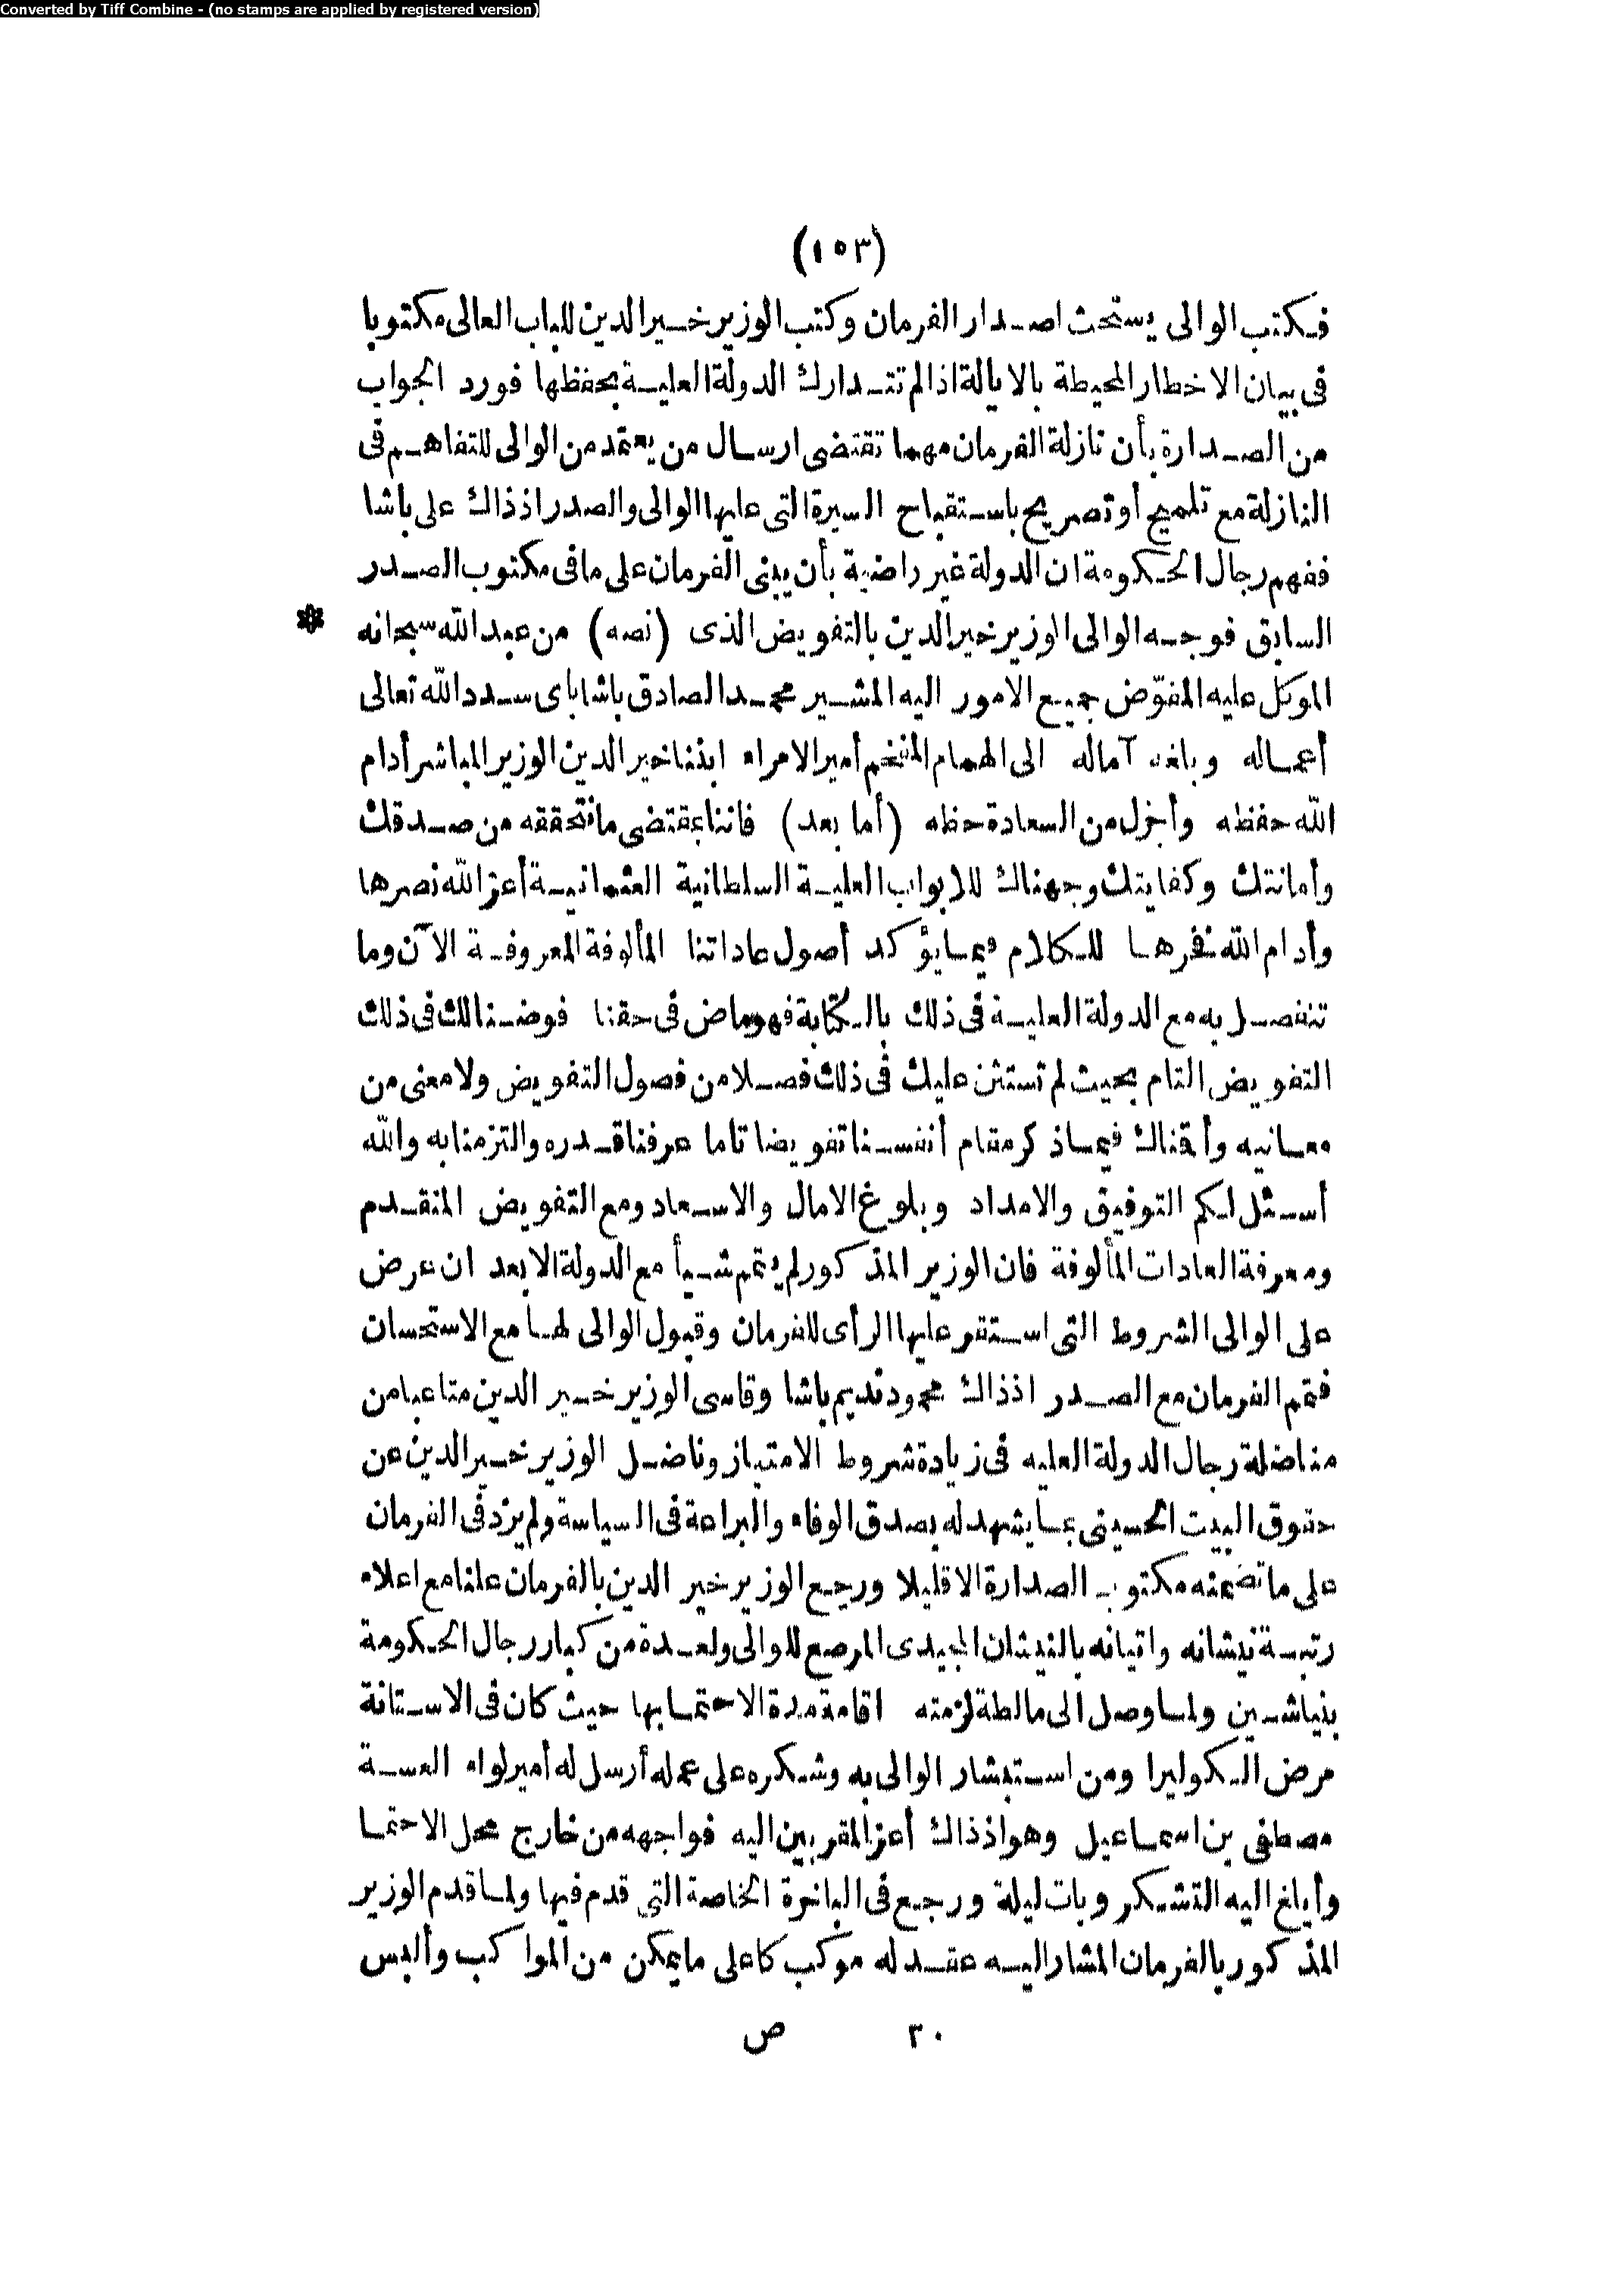 Converted by Tiff Combine - (no stamps are applied by registered version)
(١٥٣)
فكتب الوالى يستحث اصدار الفرمان وكتب الوزير خير الدين للباب العالى مكتوبا
فى بيان الاخطار المحيطة بالايالة اذا لم تتدارك الدولة العلية بحفظها فورد الجواب
من الصدارة بأن نازلة الفرمان مهما تقتضى ارسال من يعتمد من الوالى للتفاهم فى
النازلة مع تلميح أو تصريح باستقباح السيرة التى عليها الوالى والصدر اذ ذاك على باشا
ففهم رجال الحكومة ان الدولة غير راضية بأن يبنى الفرمان على ما فى مكتوب الصدر
السابق فوجه الوالى الوزير خير الدين بالتفويض الذى (نصه) من عبد الله سبحانه *
الموكل عليه المفوّض جميع الامور اليه المشير محمد الصادق باشا باى سدد الله تعالى
أعماله وبلغه آماله الى الهمام المفخم أمير الامراء ابننا خير الدين الوزير المباشر أدام
الله حفظه وأجزل من السعادة حظه (أما بعد) فاننا بمقتضى ما نتحققه من صدقك
وأمانتك وكفايتك وجهناك للابواب العلية السلطانية العثمانية أعز الله نصرها
وأدام الله فخرها للكلام فيما يؤكد أصول عاداتنا المألوفة المعروفة الآن وما
تنفصل به مع الدولة العلية فى ذلك بالكتابة فهو ماض فى حقنا فوضنا لك فى ذلك
التفويض التام بحيث لم تستثن عليك فى ذلك فصلا من فصول التفويض ولا معنى من
معانيه وأقمناك فيما ذكر مقام أنفسنا تفويضا تاما عرفنا قدره والتزمنا به والله
أسئل لكم التوفيق والامداد وبلوغ الامال والاسعاد ومع التفويض المتقدم
ومعرفة العادات المألوفة فان الوزير المذكور لم يتمم شيأ مع الدولة الا بعد ان عرض
على الوالى الشروط التى استقر عليها الرأى للفرمان وقبول الوالى لها مع الاستحسان
فتمم الفرمان مع الصدر اذ ذاك محمود نديم باشا وقاسى الوزير خير الدين متاعبا من
مناضلة رجال الدولة العليه فى زيادة شروط الامتياز وناضل الوزير خير الدين عن
حقوق البيت الحسينى بما يشهد له بصدق الوفاء والبراعة فى السياسة ولم يزد فى الفرمان
على ما تضمنه مكتوب الصدارة الا قليلا ورجع الوزير خير الدين بالفرمان علنا مع اعلاء
رتبة نيشانه واتيانه بالنيشان المجيدى المرصع للوالى ولعدة من كبار رجال الحكومة
بنياشين ولما وصل الى مالطة لزمته اقامة مدة الاحتما بها حيث كان فى الاستانة
مرض الكوليرا ومن استبشار الوالى به وشكره على عمله أرسل له أمير لواء العسة
مصطفى بن اسماعيل وهو اذ ذاك أعز المقربين اليه فواجهه من خارج محل الاحتما
وأبلغ اليه التشكر وبات ليلة ورجع فى الباخرة الخاصة التى قدم فيها ولما قدم الوزير
المذكور بالفرمان المشار اليه عقد له موكب كاعلى ما يمكن من المواكب وألبس
٢٠ ص